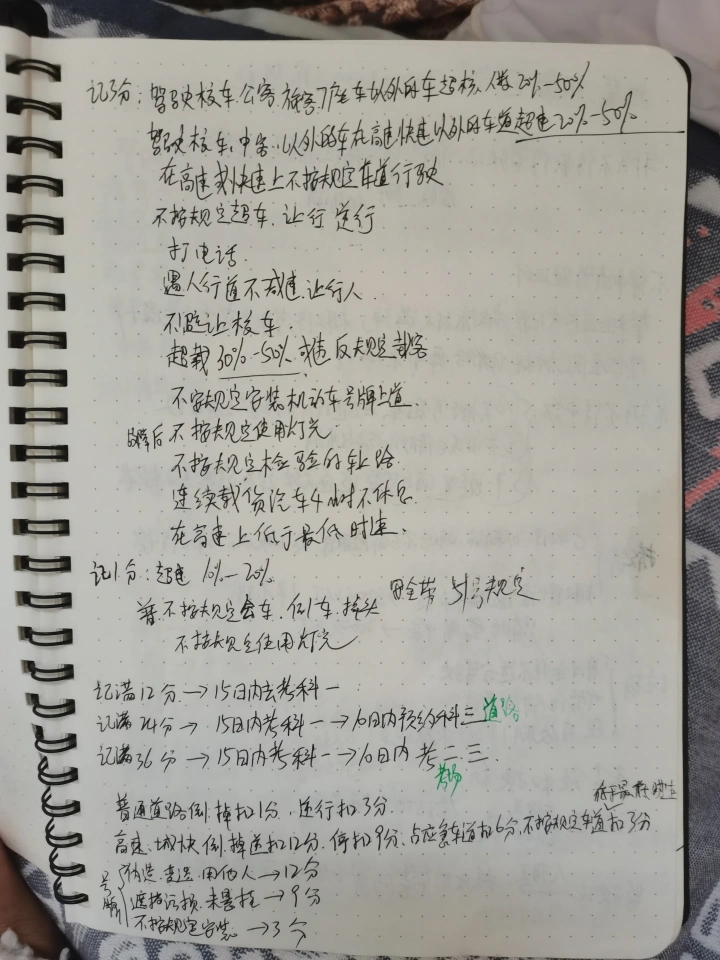 记3分：驾驶校车.公客.旅客7座车以外的车超核人数20%-50%
驾驶校车、中客、以外的车在高速快速以外的车道超速20%-50%
在高速或快速上不按规定车道行驶
不按规定超车.让行 逆行
打电话.
遇人行道不减速.让行人
不避让校车.
超载30%-50%.或违反规定载客
不按规定安装机动车号牌上道.
故障后 不按规定使用灯光
不按规定检验的车上路
连续载货汽车4小时不休息
在高速上低于最低时速.
记1分：超速 10%-20%
普 不按规定会车.倒车.掉头 安全带
不按规定使用灯光
记满12分→15日内去考科一
记满24分→15日内考科一→10日内预约科三 道路
记满36分→15日内考科一→10日内 考二.三.
低于最低时速
普通道路倒.掉扣1分.逆行扣3分.
高速.城快倒.掉逆扣12分.停扣9分、占应急车道扣6分、不按规定车道扣3分
号牌 伪造.变造.用他人→12分
遮挡污损.未悬挂→9分
不按规定安装→3分